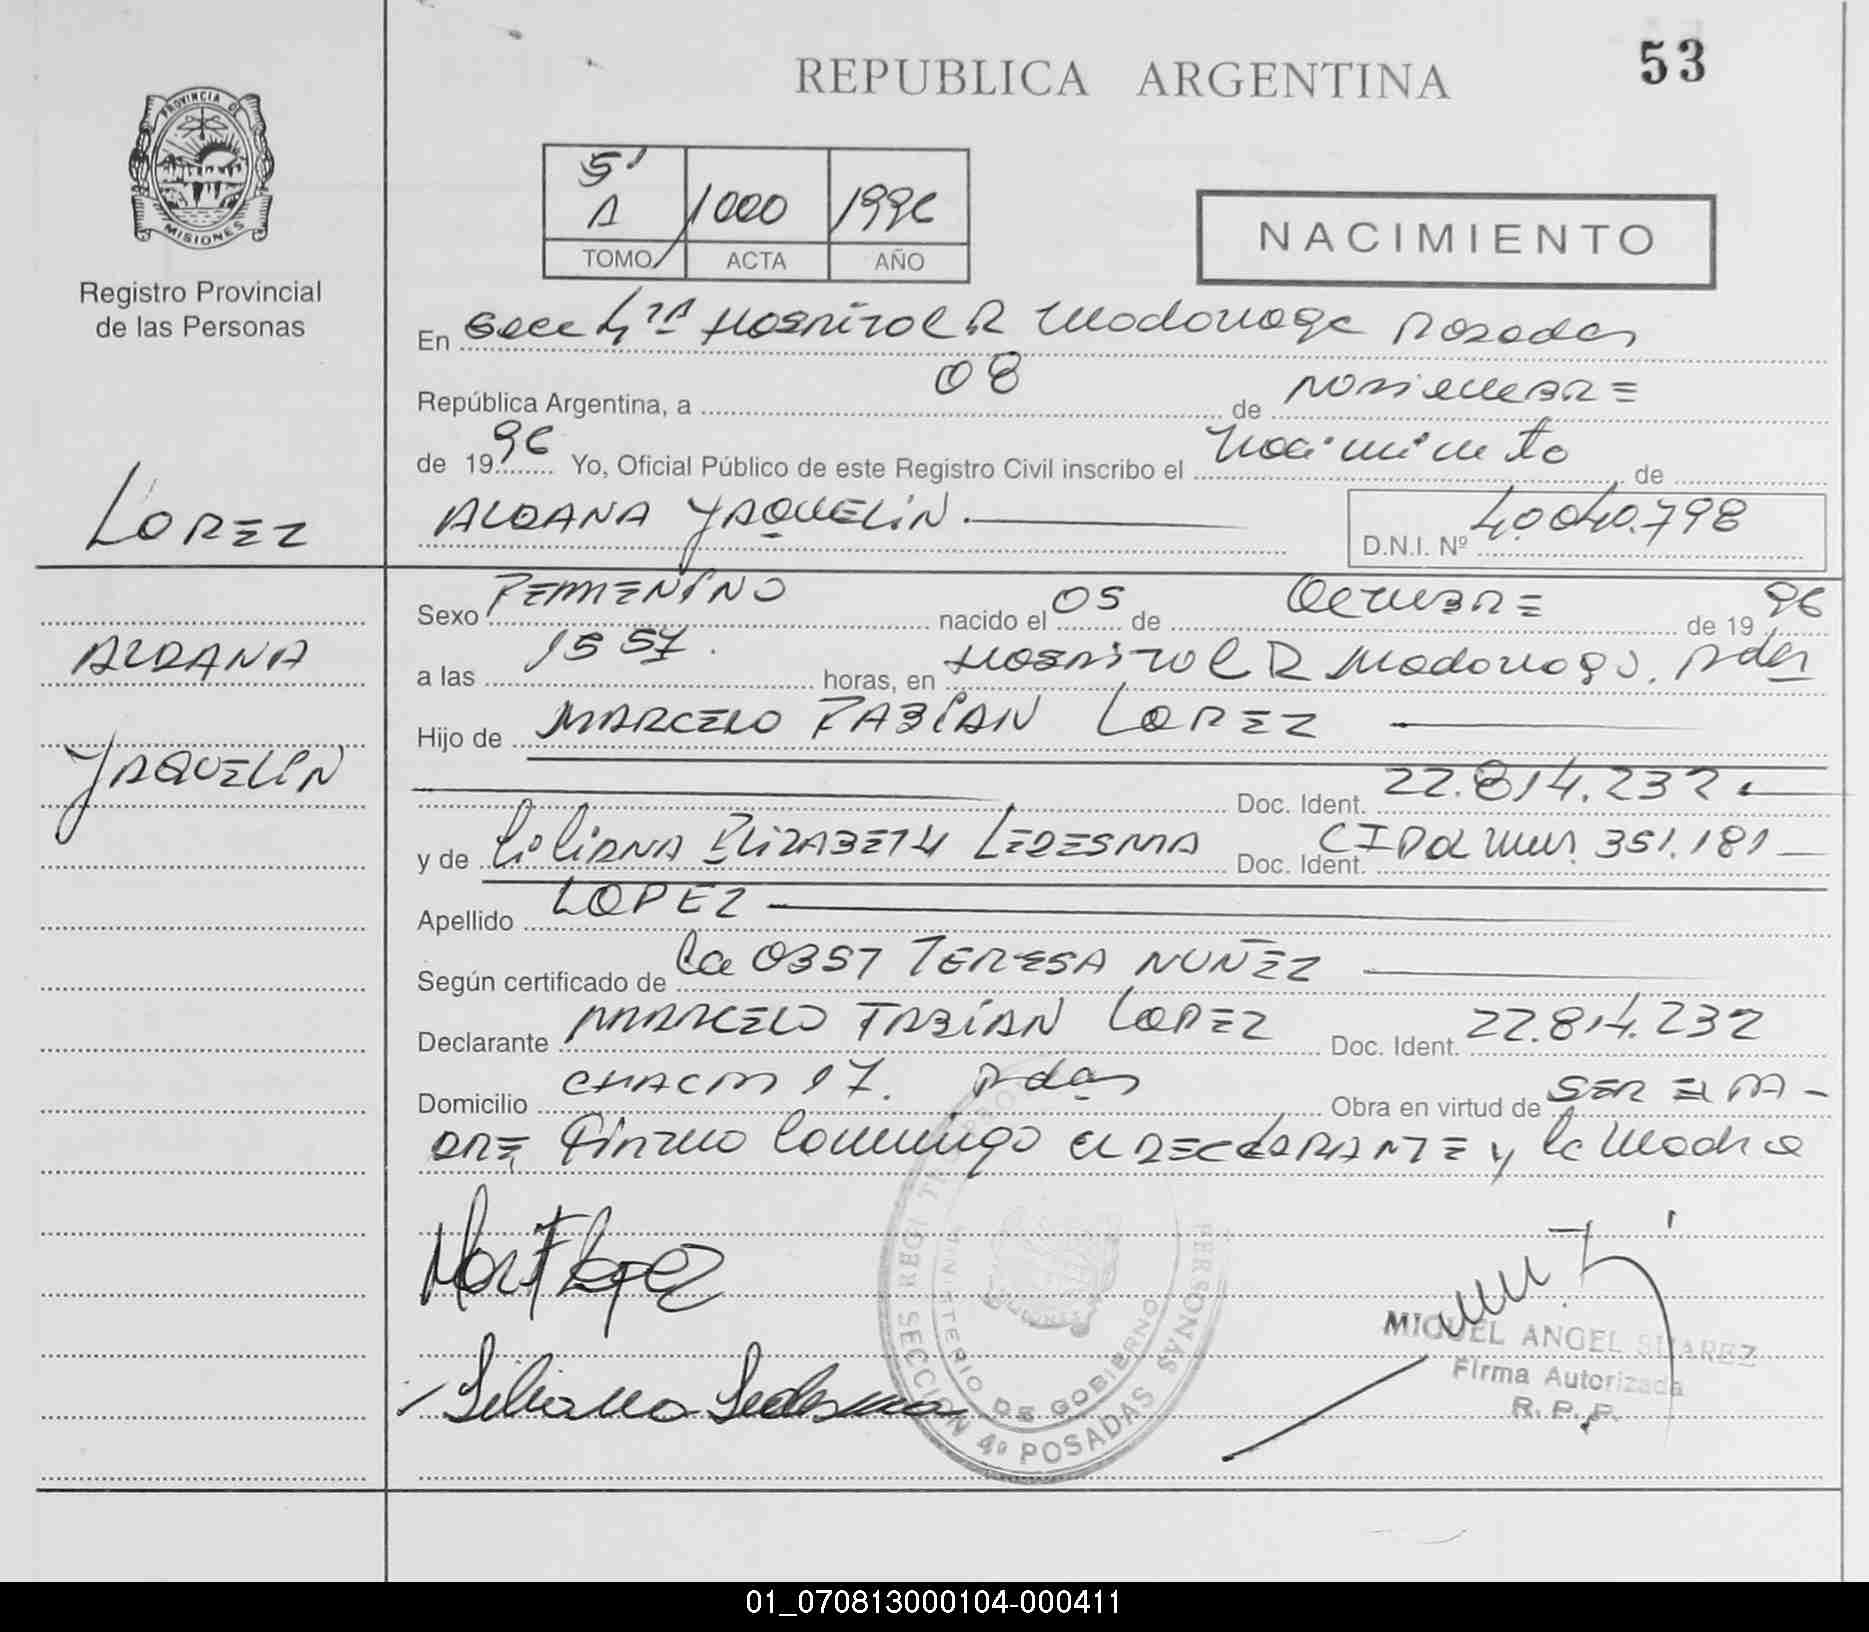 53
REPUBLICA ARGENTINA
PROVINCIA DE
MISIONES
Registro Provincial
de las Personas
5'
A 1000 1996
TOMO ACTA AÑO
NACIMIENTO
En Secc 4ta Hospital R Madariaga Posadas
República Argentina, a 08 de NOViEMBRE
de 1996 Yo, Oficial Público de este Registro Civil inscribo el Nacimiento de
ALDANA YAQUELiN. D.N.I. Nº 40.040.798
LOPEZ
ALDANA
YAQUELiN
Sexo FEMENiNO nacido el 05 de OCTUBRE de 1996
a las 1557. horas, en Hospital R Madariaga. Pdas
Hijo de MARCELO FABiAN LOPEZ
Doc. Ident. 22.814.232
y de LiLiANA ELiZABETH LEDESMA Doc. Ident. CI Pol Mis. 351.181
Apellido LOPEZ
Según certificado de La OBST TERESA NUÑEZ
Declarante MARCELO FABiAN LOPEZ Doc. Ident. 22.814.232
Domicilio CHACRA 17. Pdas Obra en virtud de SER EL PA-
DRE, firman conmigo EL DECLARANTE y la Madre
Mar F Lopez
Liliana Ledesma
MINISTERIO DE GOBIERNO
SECCION 4º POSADAS
MIGUEL ANGEL SUAREZ
Firma Autorizada
R. P. P.
01_070813000104-000411